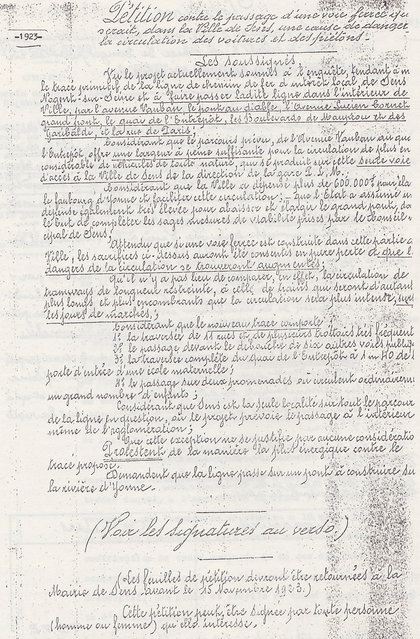 Pétition contre le passage d'une voie ferrée qui
-1923-
serait, dans la Ville de Sens, une cause de danger
la circulation des voitures et des piétons.
Les Soussignés,
Vu le projet actuellement soumis à l'enquête, tendant à m
le tracé primitif de la ligne de chemin de fer d'intérêt local de Sens
Nogent-sur-Seine et à faire passer ladite ligne dans l'intérieur de
Ville, par l'avenue Vauban, le pont au diable, l'Avenue Lucien Cornet
grand pont, le quai de l'Entrepôt, les Boulevards de Maupeou et des
Garibaldi, et la rue de Paris;
Considérant que le parcours prévu, de l'Avenue Vauban ainsi que
l'Entrepôt, offre une largeur à peine suffisante pour la circulation de plus en
considérable de véhicules de toute nature, qui se produit sur cette seule voie
d'accès à la Ville de Sens de la direction de la gare P. L. M.
Considérant que la Ville a dépensé plus de 600.000f pour
le faubourg d'Yonne et faciliter cette circulation; que l'État a assumé un
dépense également très élevée pour abaisser et élargir le grand pont, da
le but de compléter les sages mesures de viabilité prises par le Conseil
cipal de Sens;
Attendu que si une voie ferrée est construite dans cette partie
Ville, les sacrifices ci-dessus auront été consentis en pure perte et que l
dangers de la circulation se trouveront augmentés;
Qu'il n'y a pas lieu de comparer, en effet, la circulation de
tramways de longueur restreinte, à celle de trains qui seront d'autant
plus longs et plus encombrants que la circulation sera plus intense, sur
les jours de marchés;
Considérant que le nouveau tracé comporte:
1° la traversée de 11 rues et de plusieurs trottoirs très fréquent
2° le passage devant le débouché de six autres voies publiqu
3° la traversée complète du quai de l'Entrepôt à 1m40 de l
porte d'entrée d'une école maternelle;
4° le passage sur deux promenades où circulent ordinairem
un grand nombre d'enfants;
Considérant que Sens est la seule localité sur tout le parcours
de la ligne en question, où le projet prévoie le passage à l'intérieur
même de l'agglomération;
Que cette exception ne se justifie par aucune considératio
Protestent de la manière la plus énergique contre le
tracé proposé.
Demandent que la ligne passe sur un pont à construire su
la rivière d'Yonne.
(Voir les signatures au verso.)
(Les feuilles de pétition devront être retournées à la
Mairie de Sens avant le 15 Novembre 1923.)
Cette pétition peut être signée par toute personne
(homme ou femme) qu'elle intéresse.